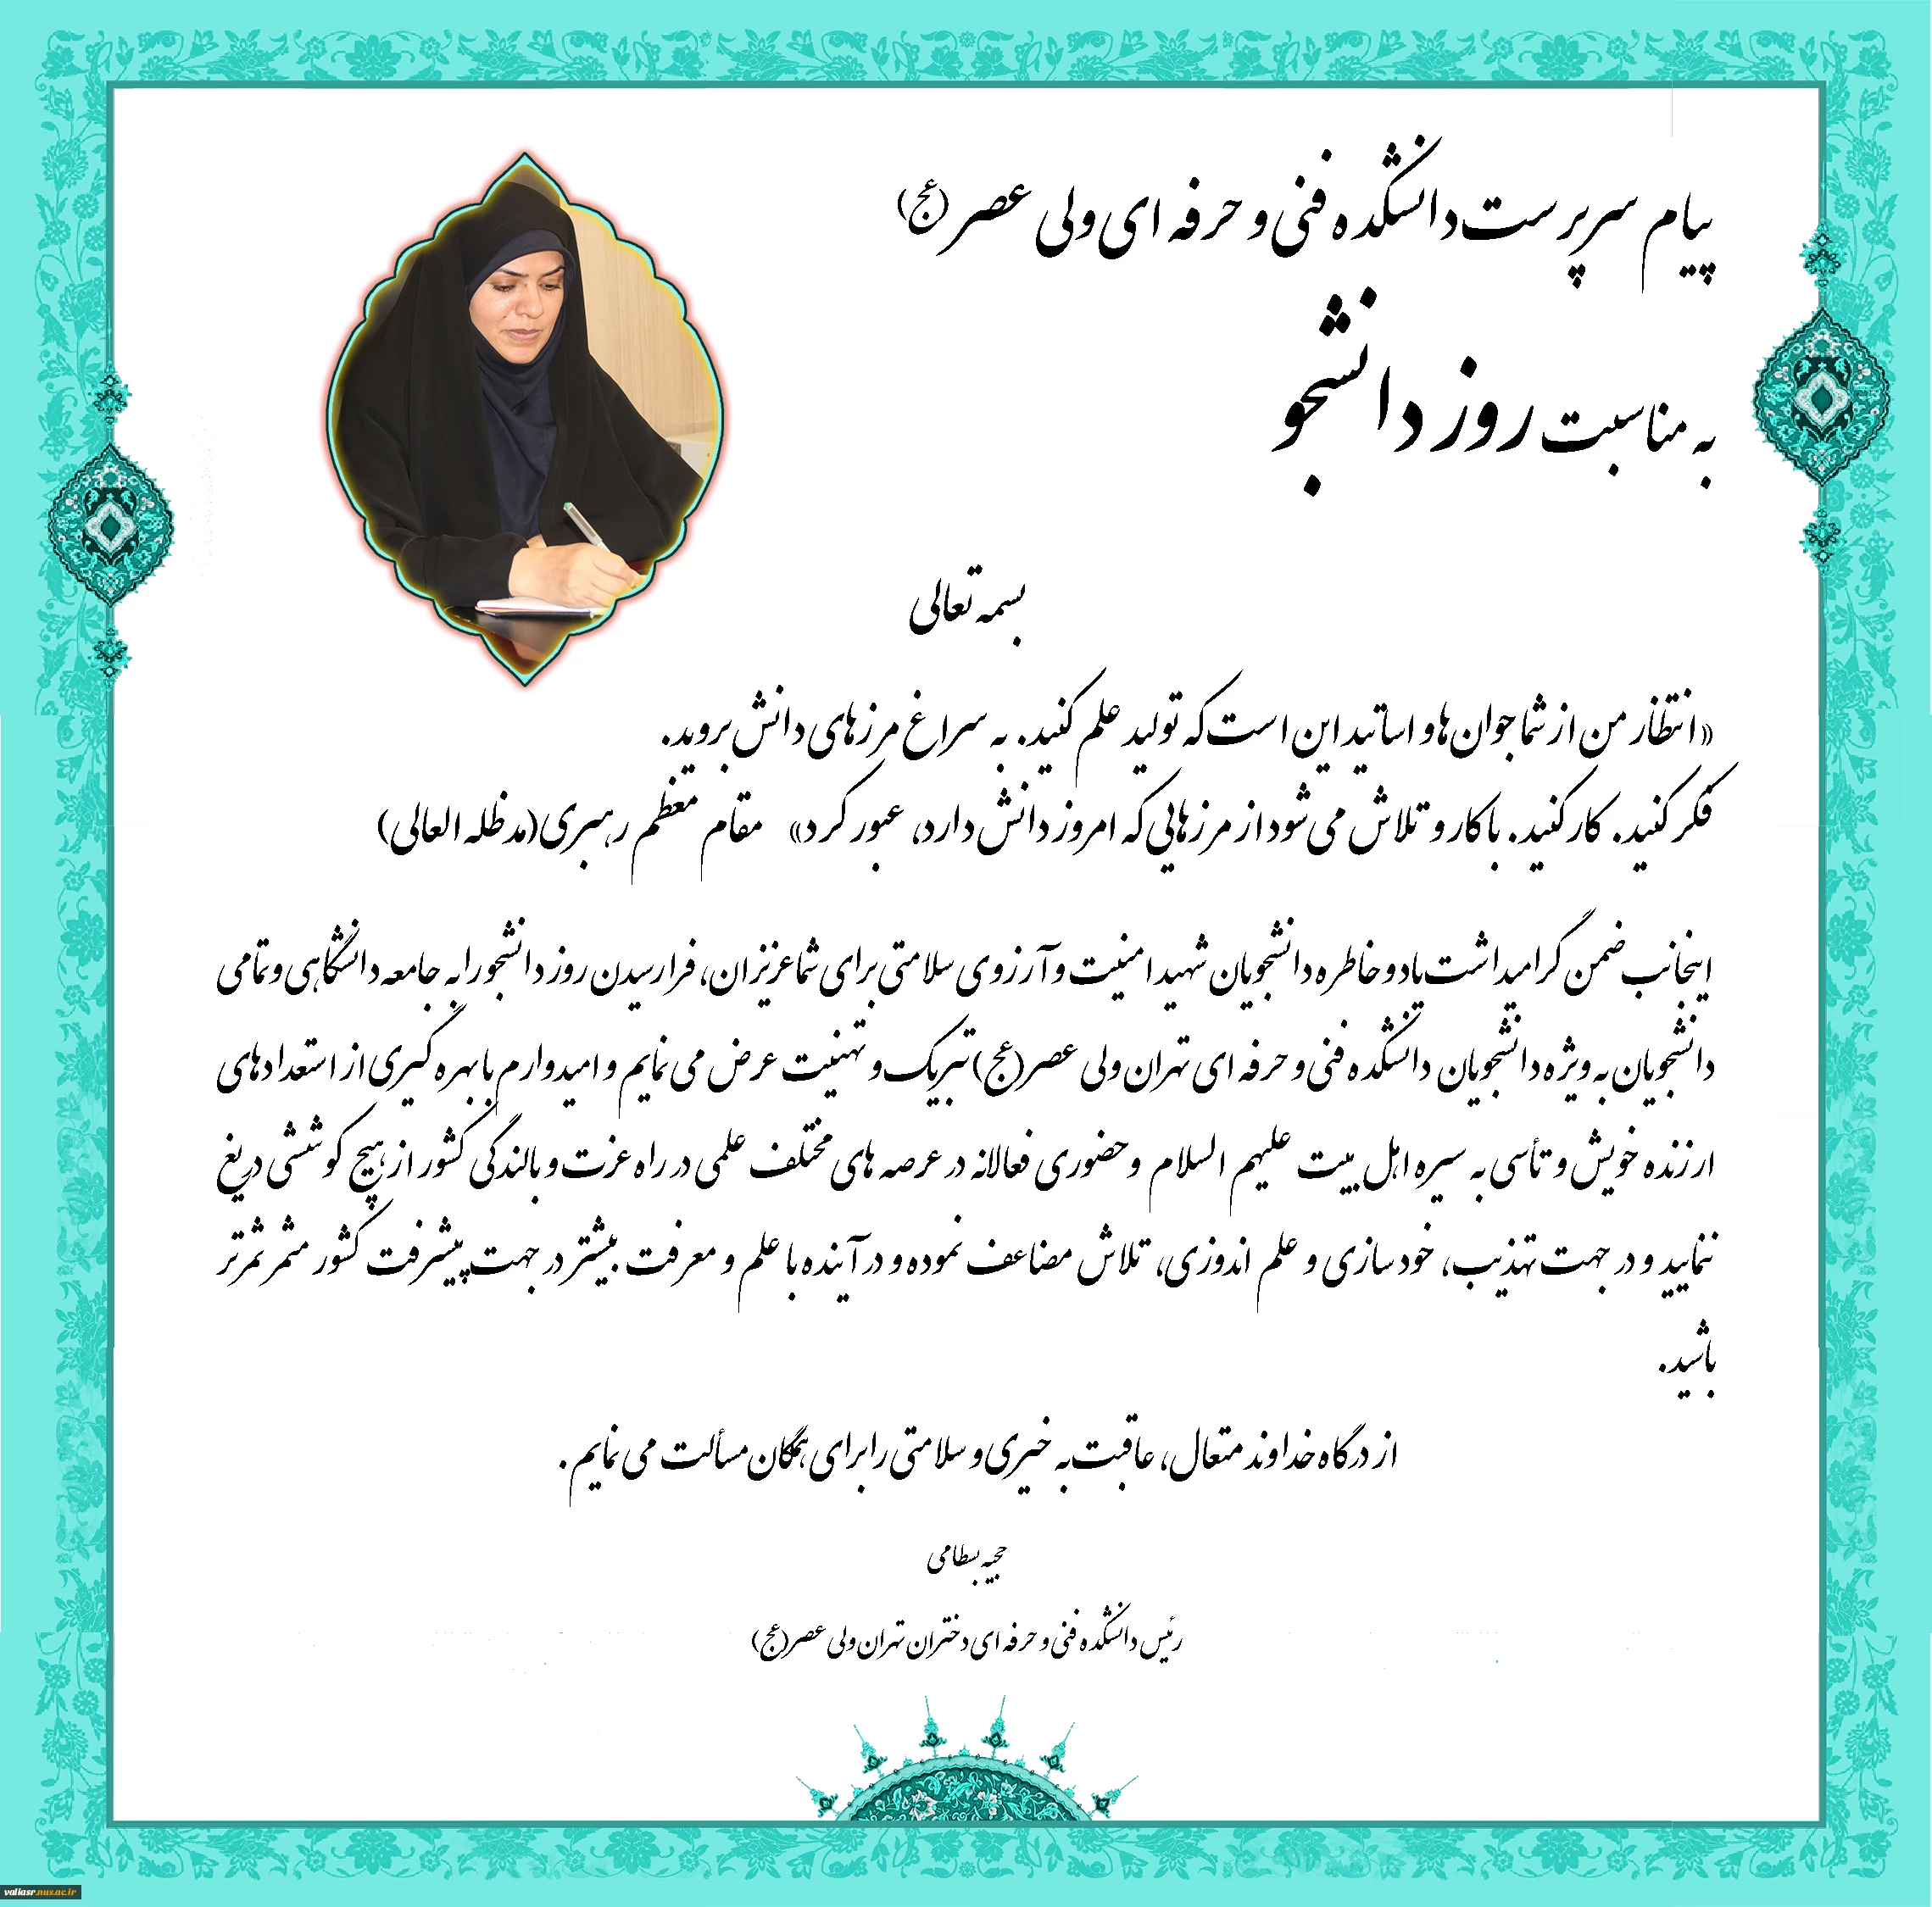 پیام سرپرست دانشکده فنی و حرفه ای ولی عصر (عج)
به مناسبت روز دانشجو
بسمه تعالی
«انتظار من از شما جوان‌ها و اساتید این است که تولید علم کنید. به سراغ مرزهای دانش بروید.
فکر کنید. کار کنید. با کار و تلاش می‌شود از مرزهایی که امروز دانش دارد، عبور کرد» مقام معظم رهبری (مدظله العالی)
اینجانب ضمن گرامیداشت یاد و خاطره دانشجویان شهید امنیت و آرزوی سلامتی برای شما عزیزان، فرارسیدن روز دانشجو را به جامعه دانشگاهی و تمامی
دانشجویان به ویژه دانشجویان دانشکده فنی و حرفه ای تهران ولی عصر (عج) تبریک و تهنیت عرض می نمایم و امیدوارم با بهره گیری از استعدادهای
ارزنده خویش و تأسی به سیره اهل بیت علیهم السلام و حضوری فعالانه در عرصه های مختلف علمی در راه عزت و بالندگی کشور از هیچ کوششی دریغ
ننمایید و در جهت تهذیب، خودسازی و علم اندوزی، تلاش مضاعف نموده و در آینده با علم و معرفت بیشتر در جهت پیشرفت کشور مثمر ثمرتر
باشید.
از درگاه خداوند متعال، عاقبت به خیری و سلامتی را برای همگان مسألت می نمایم.
بسطامی
رئیس دانشکده فنی و حرفه ای دختران تهران ولی عصر (عج)
valiasr.nus.ac.ir